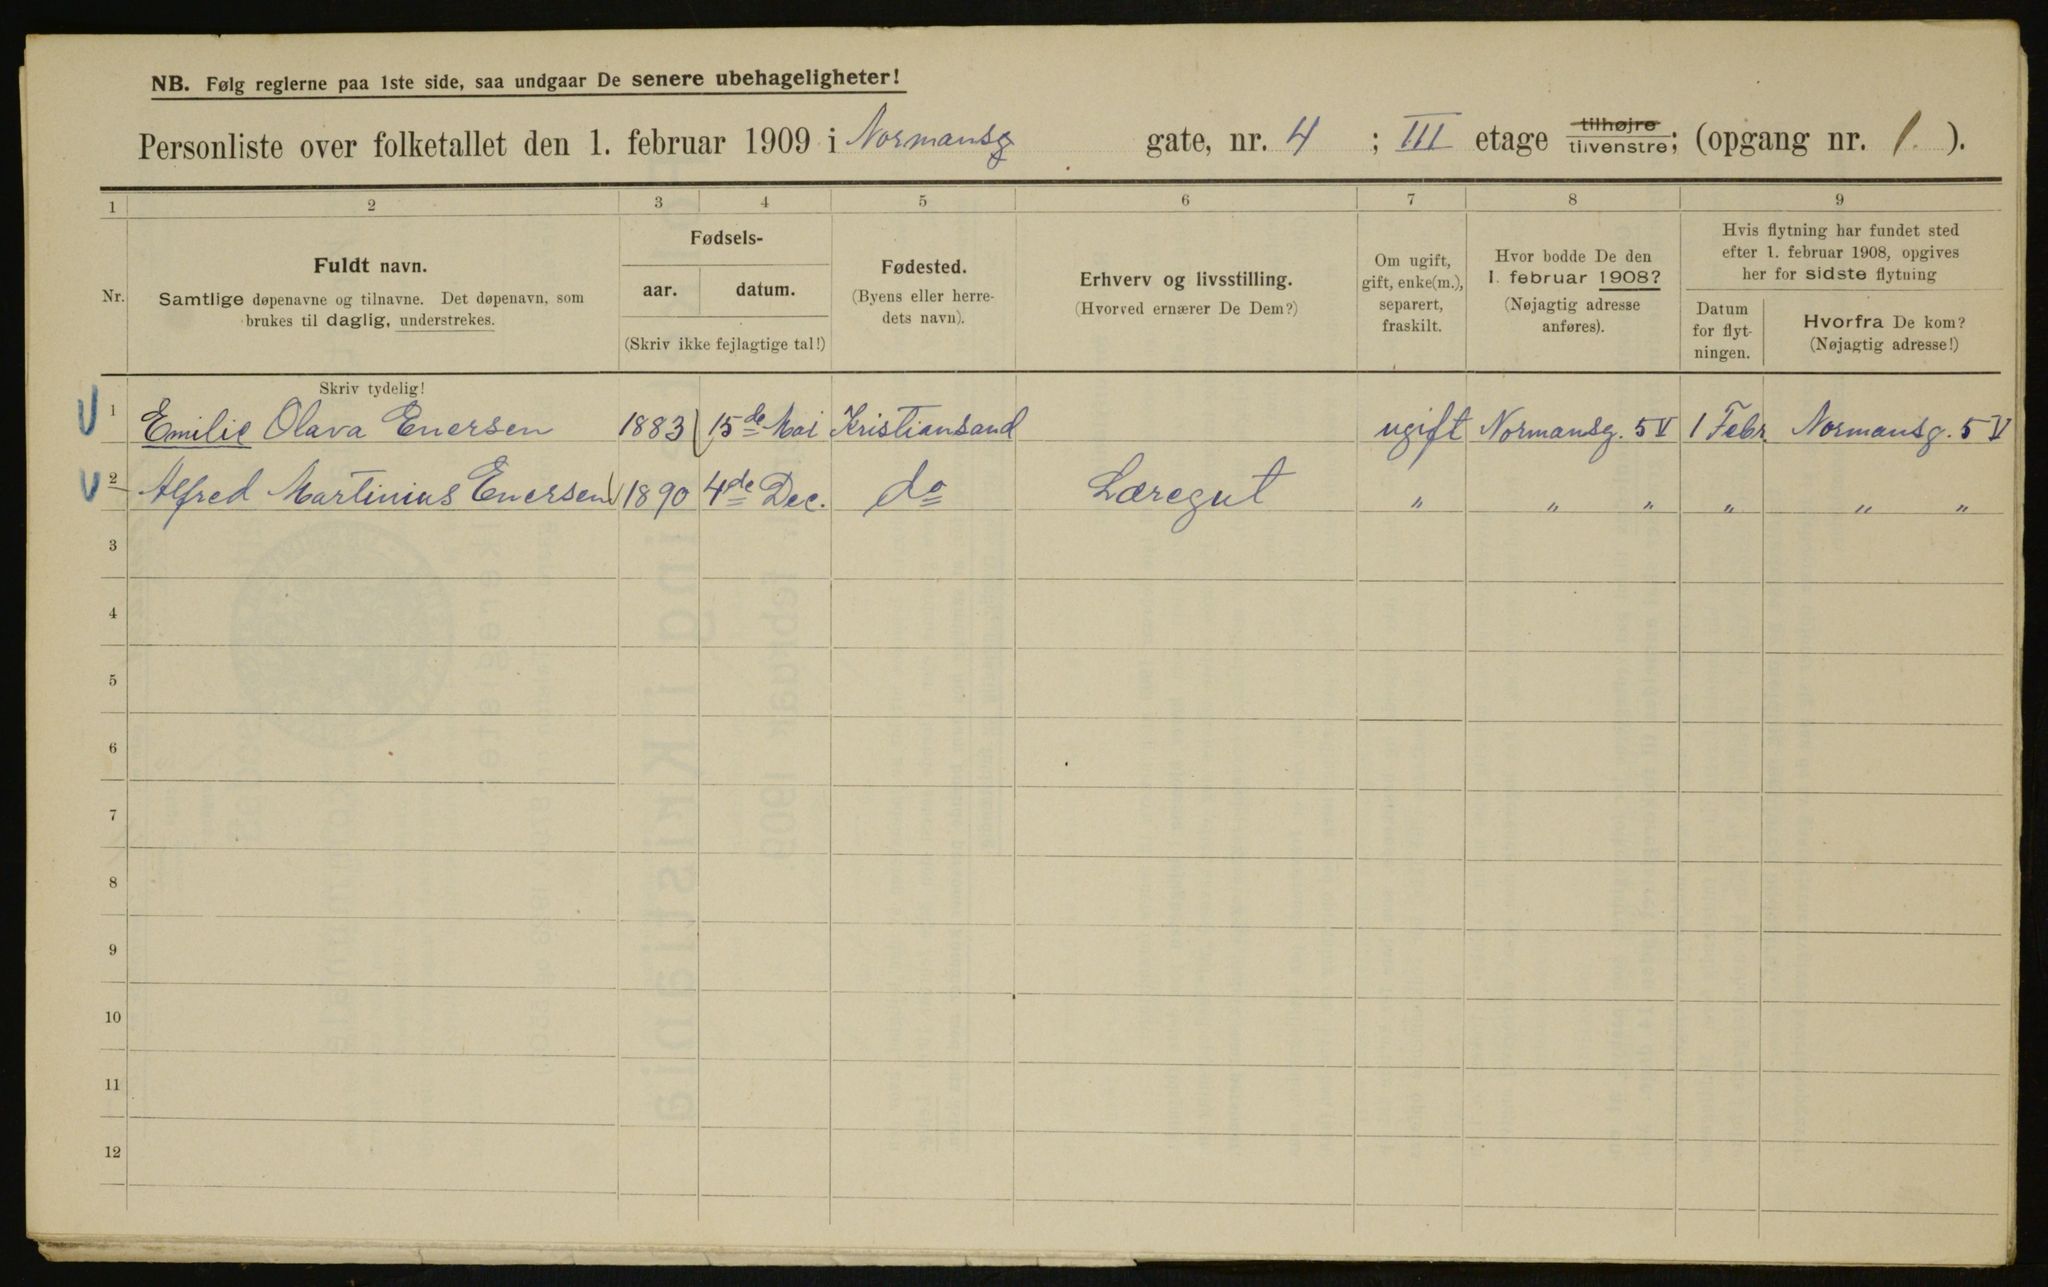 NB. Følg reglerne paa 1ste side, saa undgaar De senere ubehageligheter!
Personliste over folketallet den 1. februar 1909 i Normansg gate, nr. 4 ; III etage tilhøjre tilvenstre; (opgang nr. 1. ).
1 2 3 4 5 6 7 8 9
Nr.
Fuldt navn.
Samtlige døpenavne og tilnavne. Det døpenavn, som
brukes til daglig, understrekes.
Fødsels-
aar. datum.
(Skriv ikke fejlagtige tal!)
Fødested.
(Byens eller herre-
dets navn).
Erhverv og livsstilling.
(Hvorved ernærer De Dem?)
Om ugift,
gift, enke(m.),
separert,
fraskilt.
Hvor bodde De den
1. februar 1908?
(Nøjagtig adresse
anføres).
Hvis flytning har fundet sted
efter 1. februar 1908, opgives
her for sidste flytning
Datum
for flyt-
ningen.
Hvorfra De kom?
(Nøjagtig adresse!)
Skriv tydelig!
1 Emilie Olava Enersen 1883 15de Mai Kristiansand ugift Normansg. 5 V 1 Febr. Normansg. 5 V
2 Alfred Martinius Enersen 1890 4de Dec. do Læregut " " " " " "
3
4
5
6
7
8
9
10
11
12